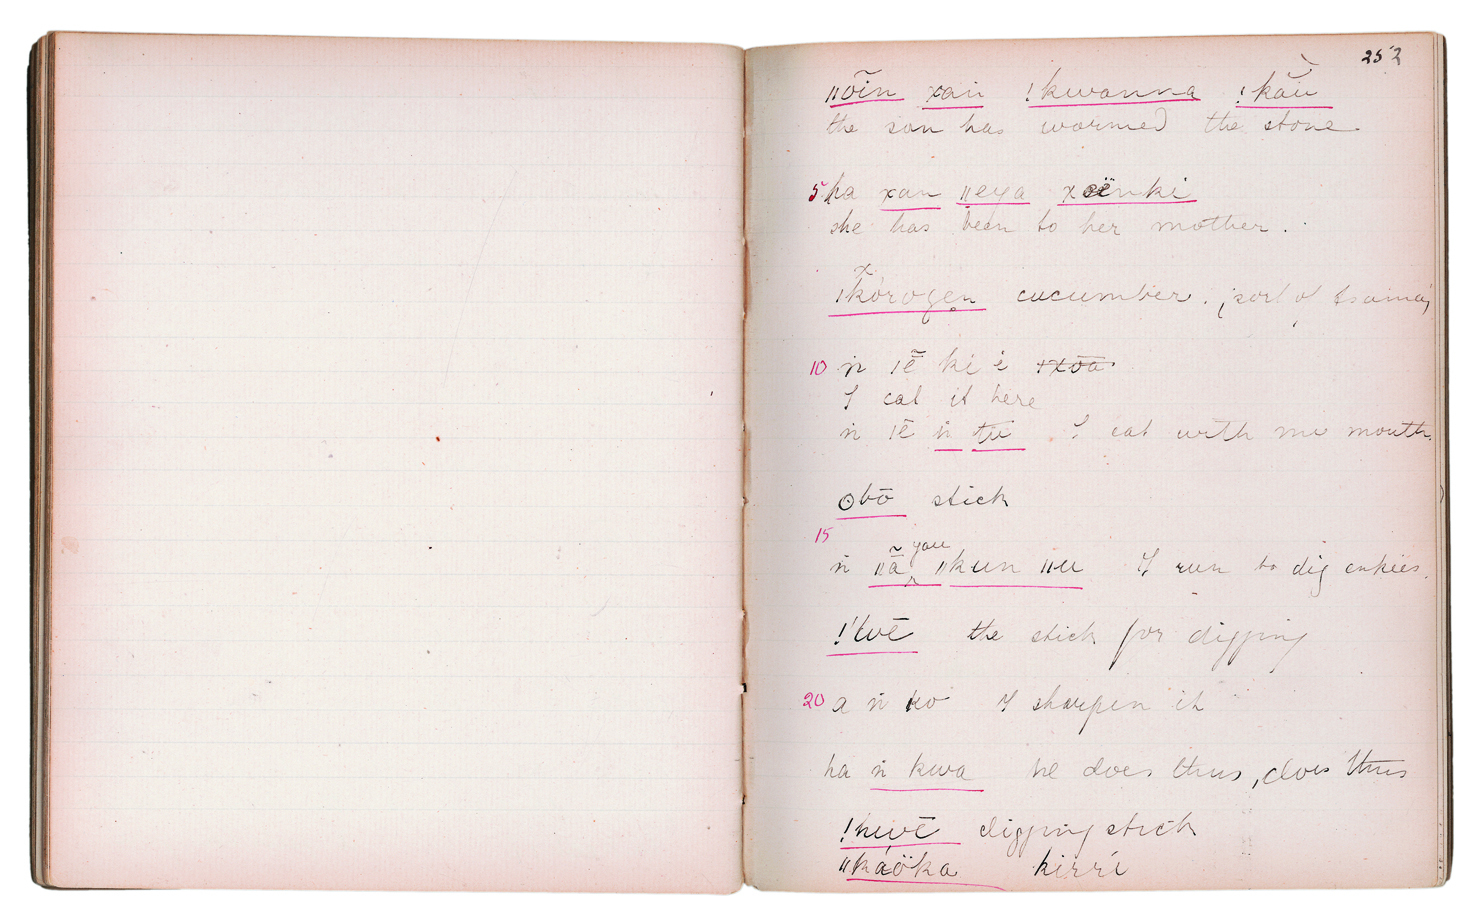 252
ǁōĩn xan !kwanna !kău
the sun has warmed the stone
5 ha xan ǁeya xoënki
she has been to her mother.
x
ǀkórogen cucumber. (sort of tsama)
10 ń ǀē̃ ki é ǀxōa
I eat it here
ń ǀē ń tū I eat with my mouth
ʘbō stick
15
you
ń ǁā̃ ǁkun ǁu I run to dig enkies.
!'twē the stick for digging
20 a ń ko I sharpen it
ha ń kwa he does thus, does thus
!hwē digging stick
ǁkáöka kirri